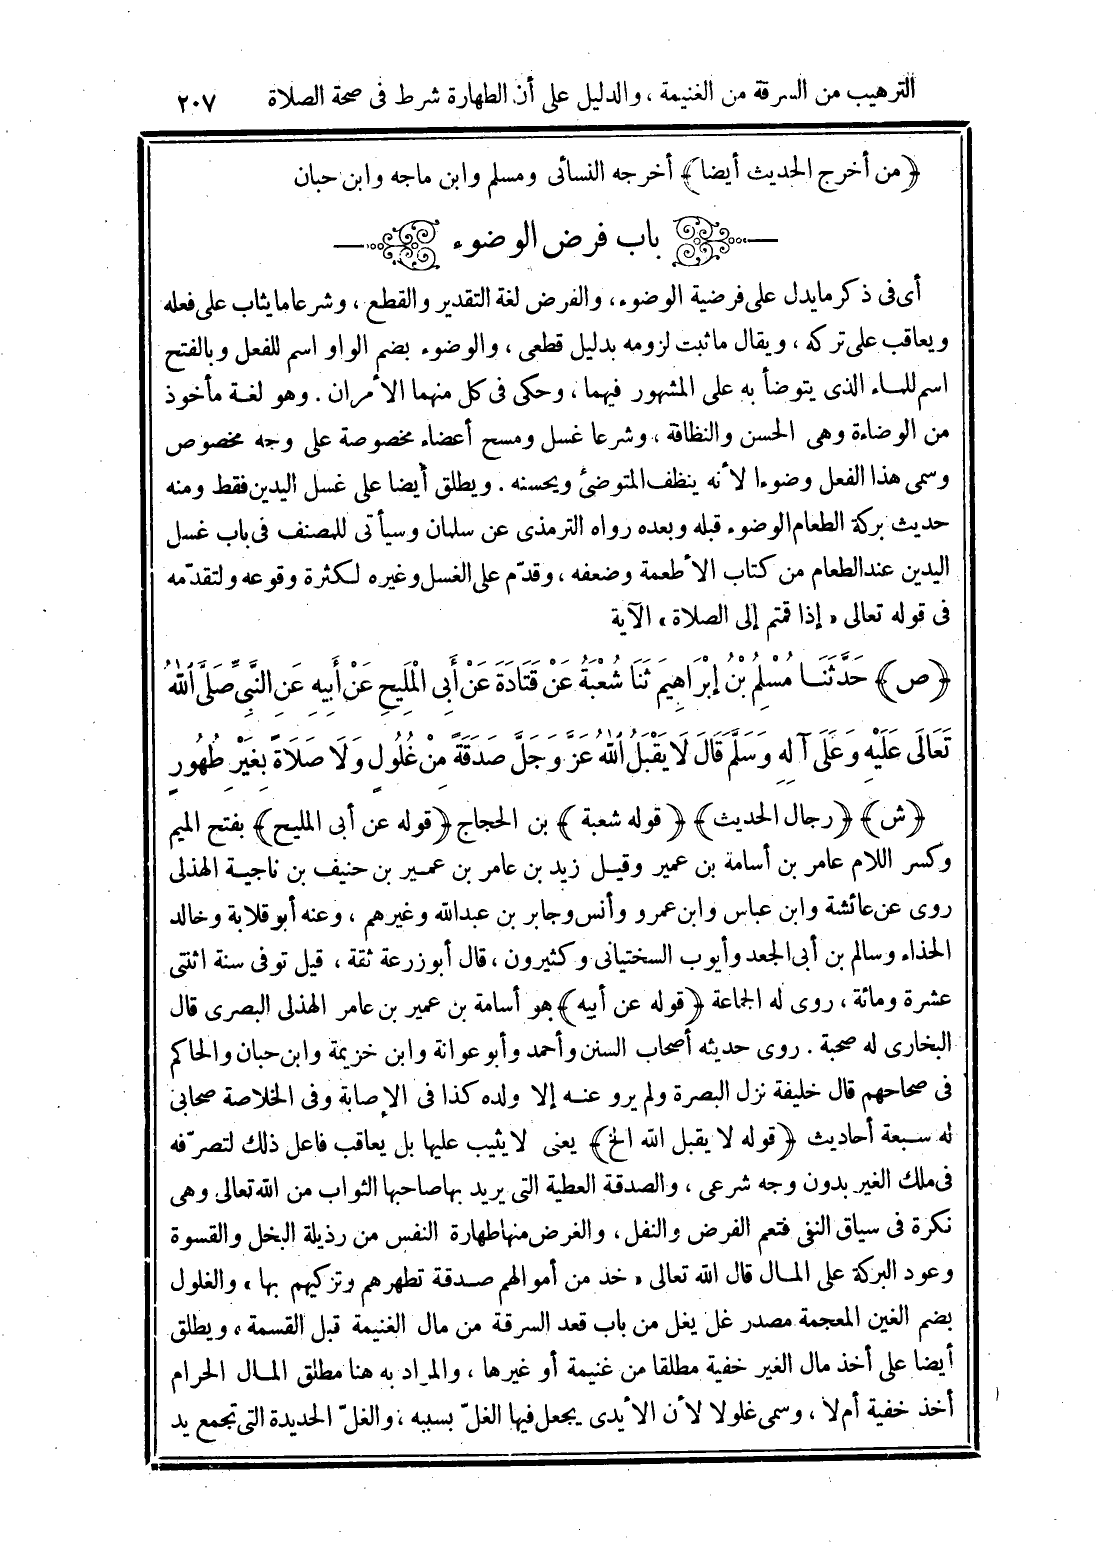 الترهيب من السرقة من الغنيمة ، والدليل على أن الطهارة شرط فى صحة الصلاة ٢٠٧
﴿من أخرج الحديث أيضا﴾ أخرجه النسائى ومسلم وابن ماجه وابن حبان
باب فرض الوضوء
أى فى ذكر مايدل على فرضية الوضوء، والفرض لغة التقدير والقطع ، وشرعا مايثاب على فعله
ويعاقب على تركه ، ويقال ماثبت لزومه بدليل قطعى ، والوضوء بضم الواو اسم للفعل وبالفتح
اسم للماء الذى يتوضأ به على المشهور فيهما ، وحكى فى كل منهما الأمران . وهو لغة مأخوذ
من الوضاءة وهى الحسن والنظافة ، وشرعا غسل ومسح أعضاء مخصوصة على وجه مخصوص
وسمى هذا الفعل وضوءا لأنه ينظف المتوضئ ويحسنه . ويطلق أيضا على غسل اليدين فقط ومنه
حديث بركة الطعام الوضوء قبله وبعده رواه الترمذى عن سلمان وسيأتى للمصنف فى باب غسل
اليدين عند الطعام من كتاب الأطعمة وضعفه ، وقدّم على الغسل وغيره لكثرة وقوعه ولتقدّمه
فى قوله تعالى « إذا قمتم إلى الصلاة » الآية
﴿ص﴾ حَدَّثَنَا مُسْلِمُ بْنُ إِبْرَاهِيمَ ثَنَا شُعْبَةُ عَنْ قَتَادَةَ عَنْ أَبِى الْمَلِيحِ عَنْ أَبِيهِ عَنِ النَّبِىِّ صَلَّى اللهُ
تَعَالَى عَلَيْهِ وَعَلَى آلِهِ وَسَلَّمَ قَالَ لَا يَقْبَلُ اللهُ عَزَّ وَجَلَّ صَدَقَةً مِنْ غُلُولٍ وَلَا صَلَاةً بِغَيْرِ طُهُورٍ
﴿ش﴾ ﴿رجال الحديث﴾ ﴿قوله شعبة﴾ بن الحجاج ﴿قوله عن أبى المليح﴾ بفتح الميم
وكسر اللام عامر بن أسامة بن عمير وقيل زيد بن عامر بن عمير بن حنيف بن ناجية الهذلى
روى عن عائشة وابن عباس وابن عمرو وأنس وجابر بن عبدالله وغيرهم ، وعنه أبو قلابة وخالد
الحذاء وسالم بن أبى الجعد وأيوب السختيانى وكثيرون ، قال أبو زرعة ثقة ، قيل توفى سنة اثنتى
عشرة ومائة ، روى له الجماعة ﴿قوله عن أبيه﴾ هو أسامة بن عمير بن عامر الهذلى البصرى قال
البخارى له صحبة . روى حديثه أصحاب السنن وأحمد وأبو عوانة وابن خزيمة وابن حبان والحاكم
فى صحاحهم قال خليفة نزل البصرة ولم يرو عنه إلا ولده كذا فى الإصابة وفى الخلاصة صحابى
له سبعة أحاديث ﴿قوله لا يقبل الله الخ﴾ يعنى لايثيب عليها بل يعاقب فاعل ذلك لتصرّفه
فى ملك الغير بدون وجه شرعى ، والصدقة العطية التى يريد بها صاحبها الثواب من الله تعالى وهى
نكرة فى سياق النفى فتعم الفرض والنفل ، والغرض منها طهارة النفس من رذيلة البخل والقسوة
وعود البركة على المال قال الله تعالى « خذ من أموالهم صدقة تطهرهم وتزكيهم بها » والغلول
بضم الغين المعجمة مصدر غل يغل من باب قعد السرقة من مال الغنيمة قبل القسمة ، ويطلق
أيضا على أخذ مال الغير خفية مطلقا من غنيمة أو غيرها ، والمراد به هنا مطلق المال الحرام
أخذ خفية أم لا ، وسمى غلولا لأن الأيدى يجعل فيها الغلّ بسببه ، والغلّ الحديدة التى تجمع يد